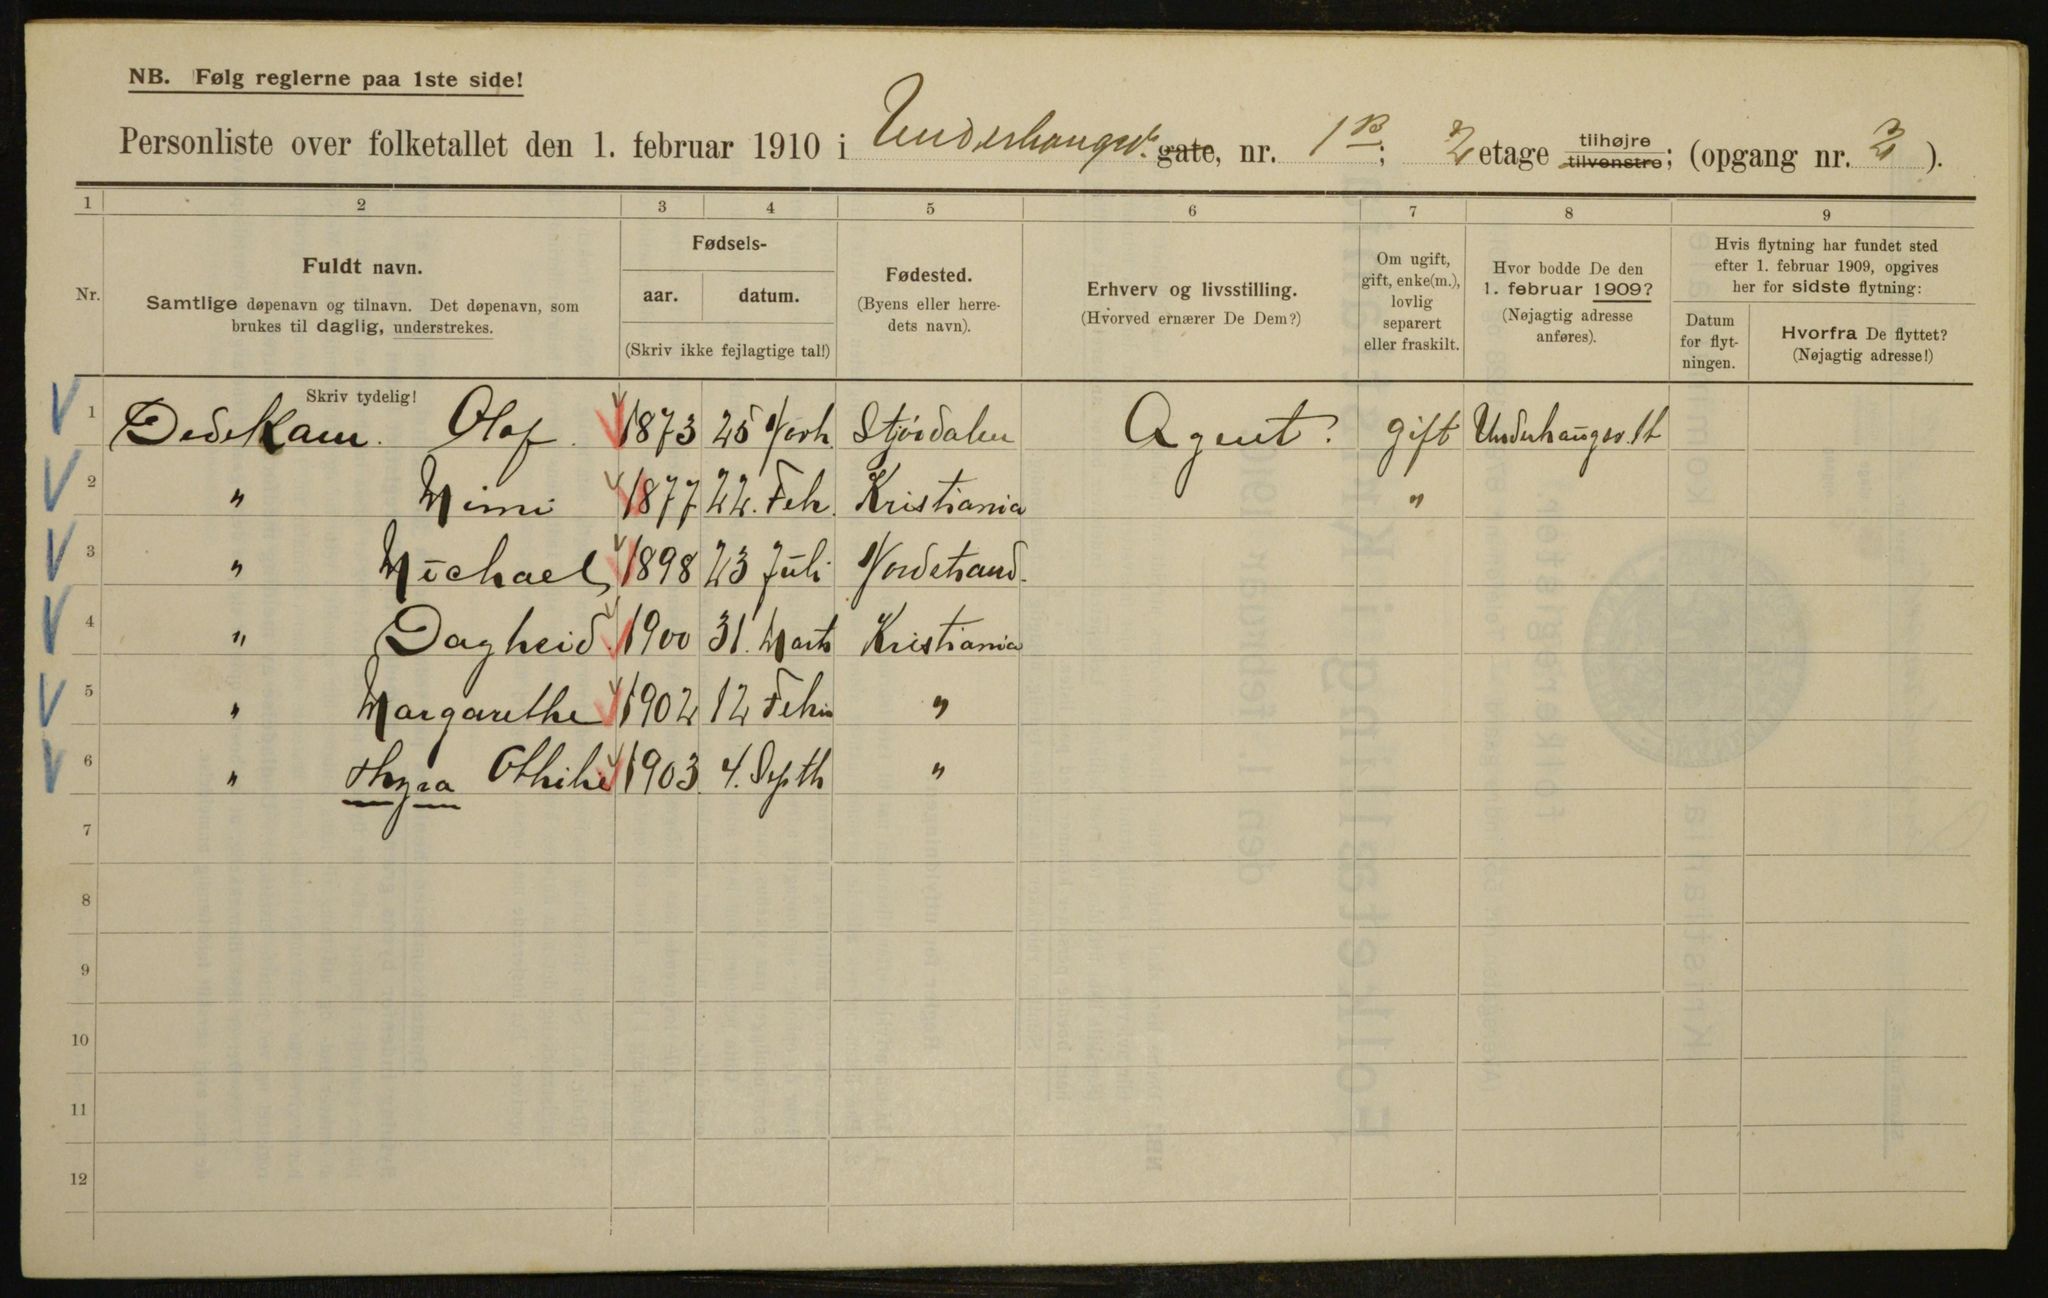 NB. Følg reglerne paa 1ste side!
Personliste over folketallet den 1. februar 1910 i Underhaugsv. gate, nr. 1B; 2 etage tilhøjre tilvenstre; (opgang nr. 2).
1 2 3 4 5 6 7 8 9
Nr.
Fuldt navn.
Samtlige døpenavn og tilnavn. Det døpenavn, som
brukes til daglig, understrekes.
Fødsels-
aar. datum.
(Skriv ikke fejlagtige tal!)
Fødested.
(Byens eller herre-
dets navn).
Erhverv og livsstilling.
(Hvorved ernærer De Dem?)
Om ugift,
gift, enke(m.),
lovlig
separert
eller fraskilt.
Hvor bodde De den
1. februar 1909?
(Nøjagtig adresse
anføres).
Hvis flytning har fundet sted
efter 1. februar 1909, opgives
her for sidste flytning:
Datum
for flyt-
ningen.
Hvorfra De flyttet?
(Nøjagtig adresse!)
Skriv tydelig!
1 Dedekam. Olaf. 1873 25 Stjørdalen Agent. gift Underhaugsv. 1b
2 " Mimi 1877 22. Feb. Kristiania "
3 " Michael, 1898 23 Juli Nordstrand.
4 " Dagheid. 1900 31. Marts Kristiania
5 " Margarethe 1902 12 Feb "
6 " Thyra Othilie 1903. 4. Septb "
7
8
9
10
11
12